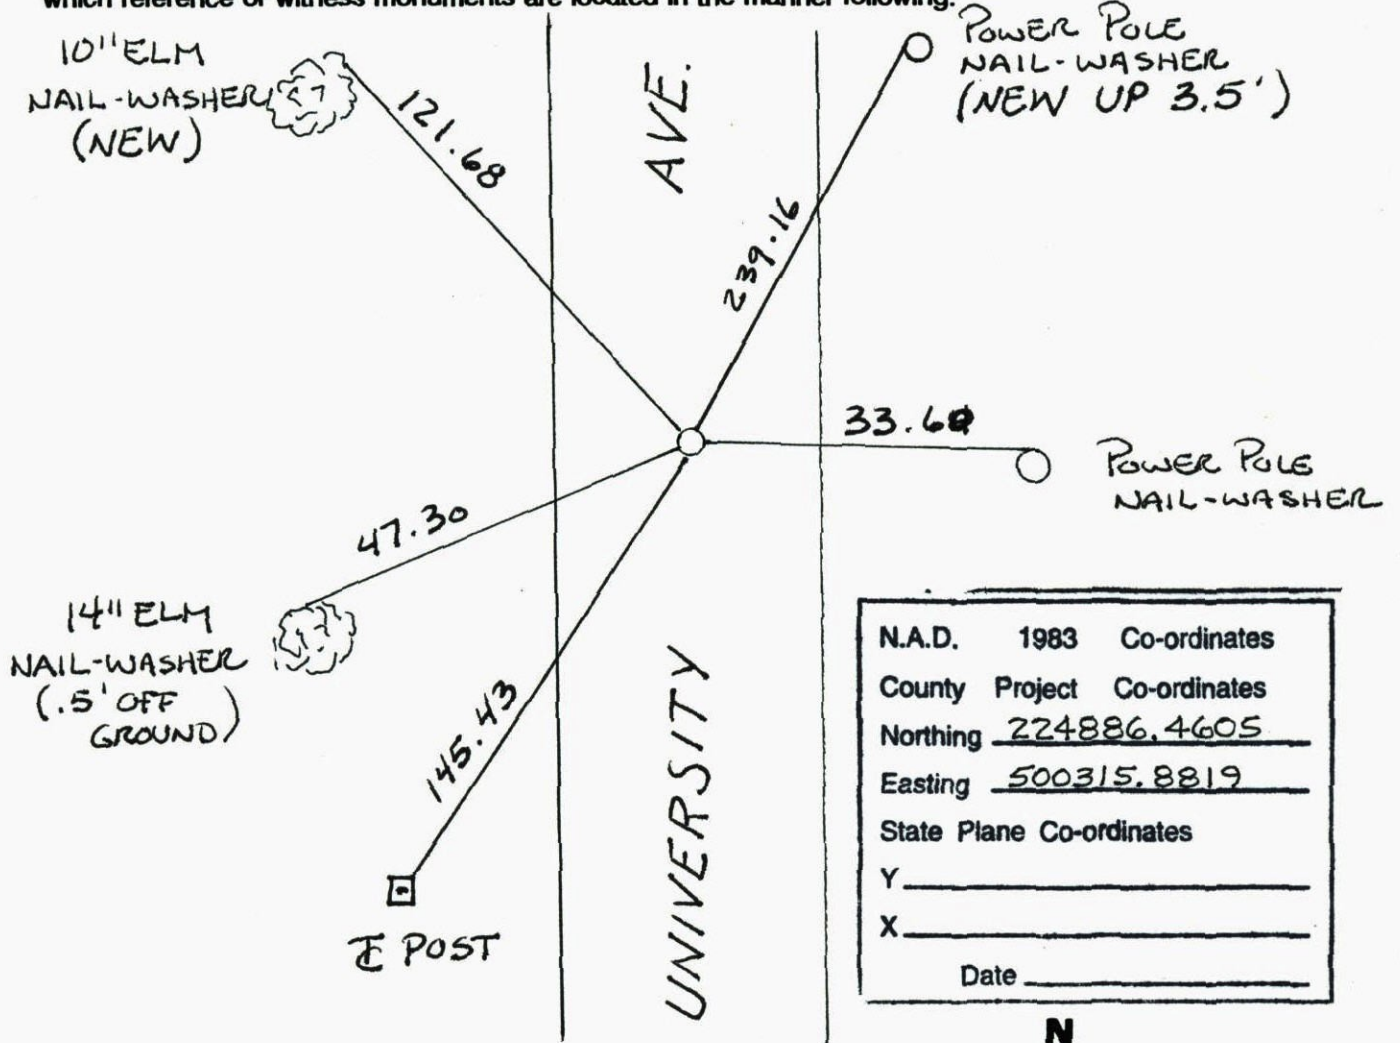 which reference or witness monuments are located in the manner following:
10" ELM
NAIL-WASHER
(NEW)
121.68
AVE.
POWER POLE
NAIL-WASHER
(NEW UP 3.5')
239.16
33.60
POWER POLE
NAIL-WASHER
47.30
14" ELM
NAIL-WASHER
(.5' OFF
GROUND)
145.43
POST
UNIVERSITY
N.A.D. 1983 Co-ordinates
County Project Co-ordinates
Northing 224886.4605
Easting 500315.8819
State Plane Co-ordinates
Y
X
Date
N